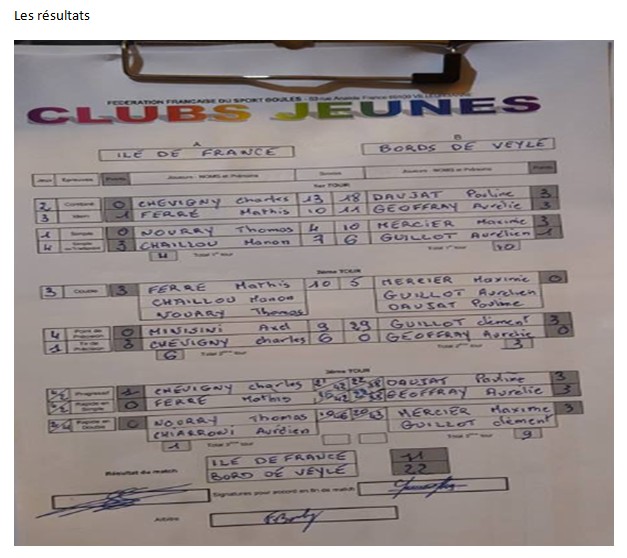 Les résultats
FEDERATION FRANCAISE DU SPORT BOULES - 63 rue Anatole France 69100 VILLEURBANNE
CLUBS JEUNES
A B
ILE DE FRANCE BORDS DE VEYLE
Jeux Epreuves Points Joueurs - NOMS et Prénoms Scores Joueurs - NOMS et Prénoms Points
1er TOUR
2 Combiné 0 CHEVIGNY Charles 13 18 DAUJAT Pauline 3
3 1 FERRÉ Mathis 10 11 GEOFFRAY Aurélie 3
1 Simple 0 NOURRY Thomas 4 10 MERCIER Maxime 3
4 Simple 3 CHAILLOU Manon 7 6 GUILLOT Aurélien 1
4 Total 1er tour Total 1er tour 10
2ème TOUR
3 Double 3 FERRE Mathis 10 5 MERCIER Maxime 0
CHAILLOU Manon GUILLOT Aurélien
NOURRY Thomas DAUJAT Pauline
4 Point de Précision 0 MINISINI Axel 9 29 GUILLOT clément 3
1 Tir de Précision 3 CHEVIGNY charles 6 0 GEOFFRAY Aurélie 0
6 Total 2ème tour Total 2ème tour 3
3ème TOUR
Progressif 1 CHEVIGNY charles DAUJAT Pauline 3
Rapide en Simple 0 FERRE Mathis GEOFFRAY Aurélie 3
Rapide en Double 0 NOURRY Thomas MERCIER Maxime 3
CHIARRONI Aurélien GUILLOT clément
1 Total 3ème tour Total 3ème tour 9
Résultat du match ILE DE FRANCE 11
BORD DE VEYLE 22
Signatures pour accord en fin de match
Arbitre